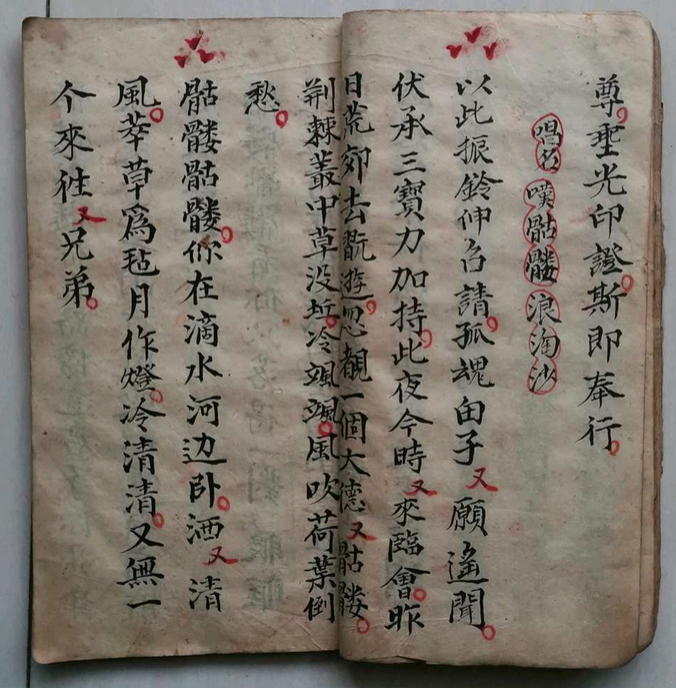 尊聖光印證斯即奉行
唱名 嘆骷髏 浪淘沙
以此振鈴伸召請孤魂由子又願遙聞
伏承三寶力加持此夜今時又來臨會昨
日荒郊去翫遊忽覩一個大德又骷髏
荆棘叢中草没坵冷颯颯風吹荷葉倒
愁
骷髏骷髏你在滴水河边卧洒又清
風萃草爲毡月作燈冷清清又無一
个來往又兄弟